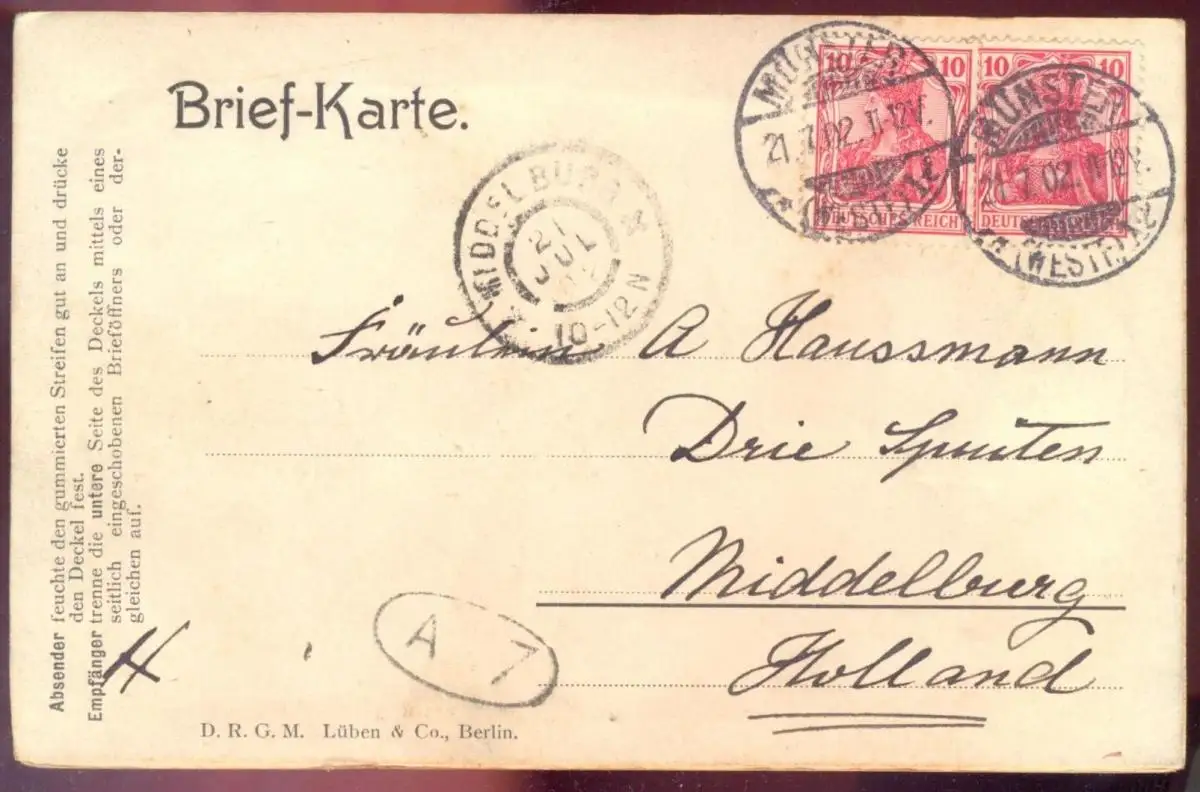 Brief-Karte.
10 10
10 10
DEUTSCHES REICH
MÜNSTER
21.7.02. 11-12V.
* (WESTF.) 1 *
MÜNSTER
21.7.02. 11-12V.
(WESTF.)
MIDDELBURG
21
JUL
10-12N
Fräulein A Haussmann
Drie
Middelburg
Holland
A 7
D. R. G. M. Lüben & Co., Berlin.
Absender feuchte den gummierten Streifen gut an und drücke
den Deckel fest.
Empfänger trenne die untere Seite des Deckels mittels eines
seitlich eingeschobenen Brieföffners oder der-
gleichen auf.